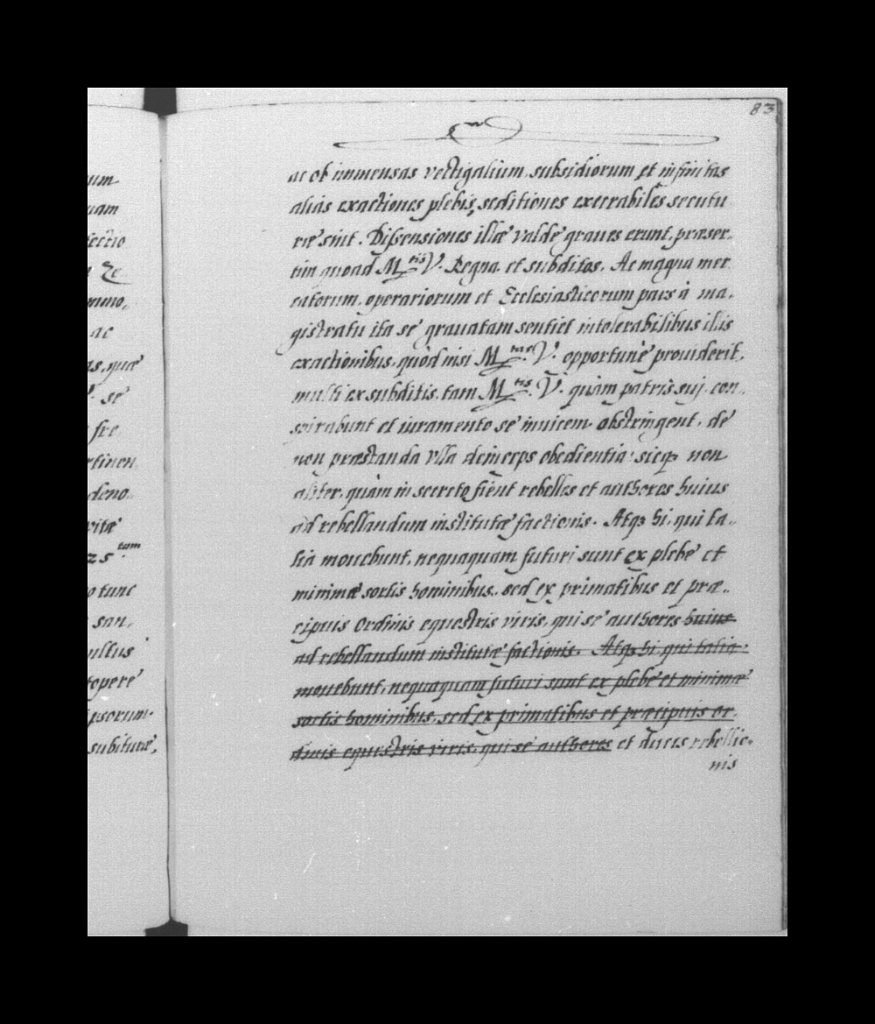 83
um
ac ob immensas vectigalium, subsidiorum et infinitas
uam
alias exactiones plebis, seditiones execrabiles secutu
ræ sint. Dissensiones illæ valde graues erunt, præser-
tim quoad M.tis V. Regna et subditos. Ac magna mer
catorum, operariorum et Ecclesiasticorum pars à ma-
ac
gistratu ita se grauatam sentiet intolerabilibus illis
as, quæ
exactionibus, quòd nisi M.tas V. opportunè prouiderit,
se
multi ex subditis, tam M.tis V. quàm patris sui, con-
spirabunt et iuramento se inuicem obstringent, de
rtinen
non præstanda vlla deinceps obedientia: sicq non
deno-
aliter, quàm in secreto fient rebelles et authores huius
vitæ
ad rebellandum institutæ factionis. Atq hi, qui ta-
25.tum
lia mouebunt, nequaquam futuri sunt ex plebe et
o tunc
minimæ sortis hominibus, sed ex primatibus et præ-
san-
cipuis Ordinis equestris viris, qui se authores huius
ullus
ad rebellandum institutæ factionis. Atq hi qui talia
opere
mouebunt, nequaquam futuri sunt ex plebe et minimæ
ipsorum
sortis hominibus, sed ex primatibus et præcipuis or-
subituræ,
dinis equestris viris, qui se authores et duces rebellio-
nis